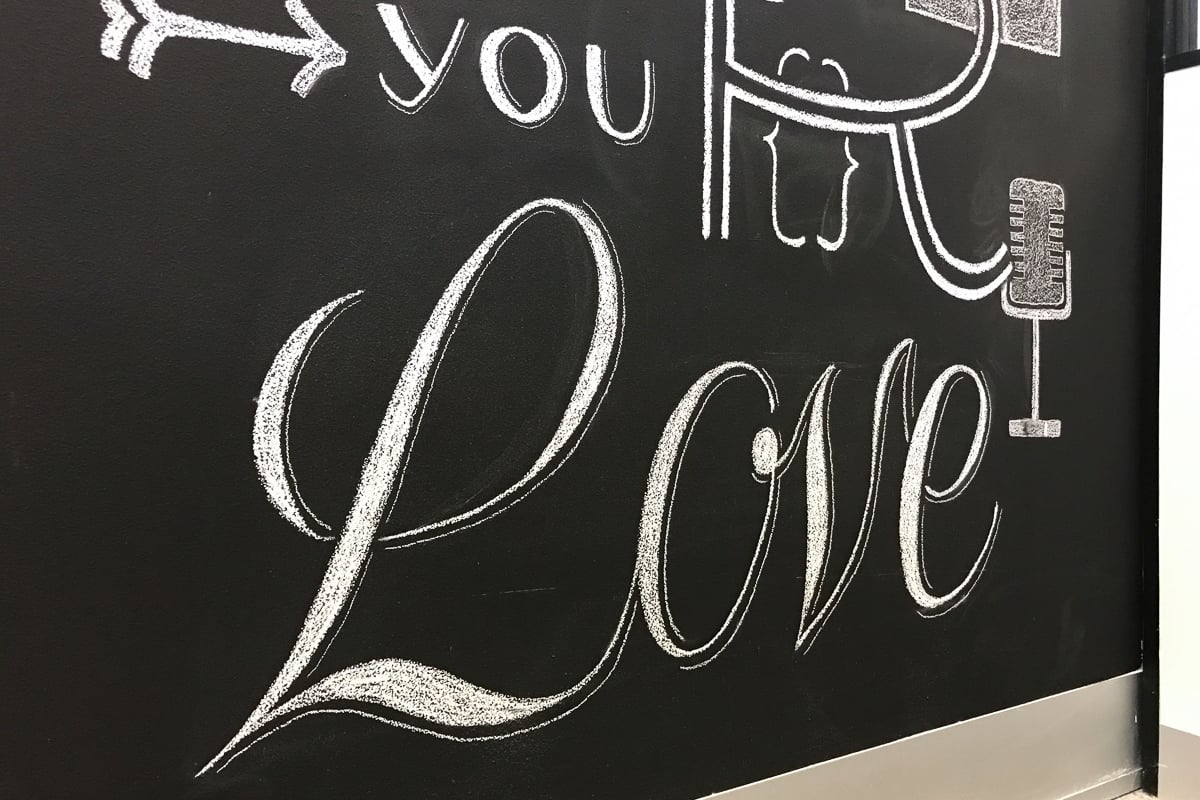 you R
Love